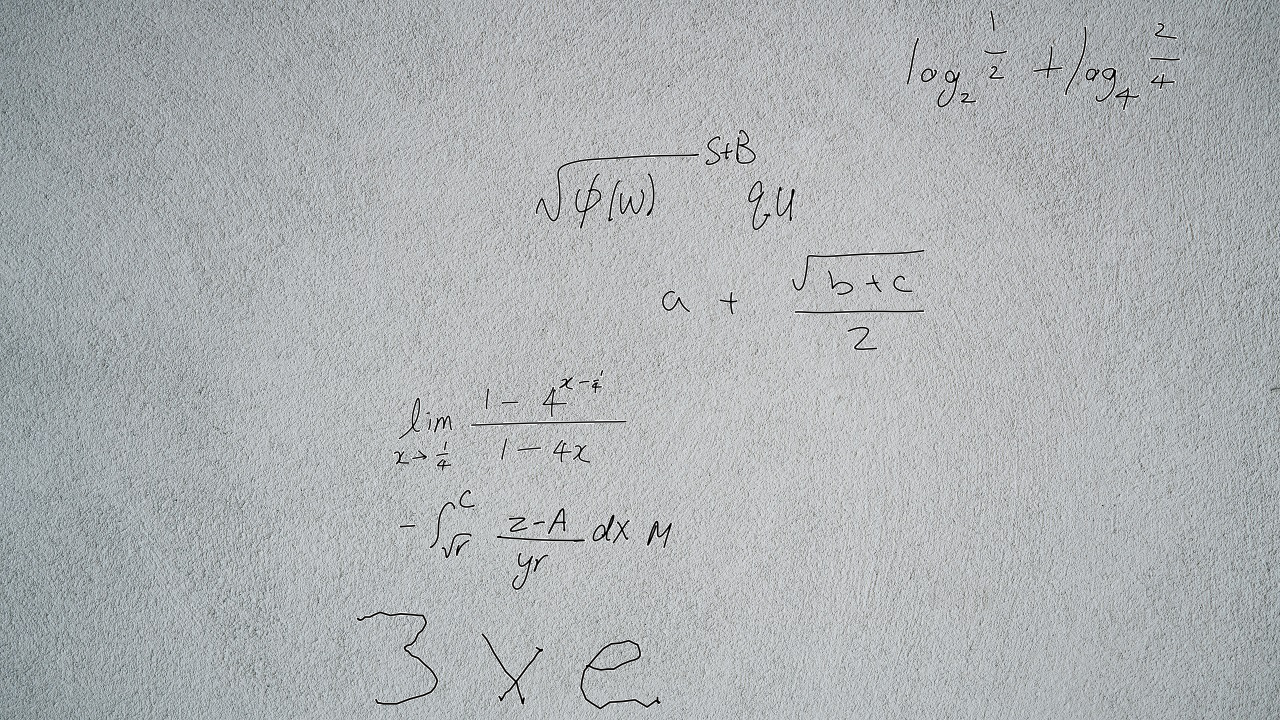 log₂ 1/2 + log₄ 2/4
√φ(w)^(S+B) qu
a + √(b+c)/2
lim_(x→1/4) (1 - 4^(x-1/4))/(1 - 4x)
- ∫_(√r)^C (z-A)/(yr) dx M
3 x e